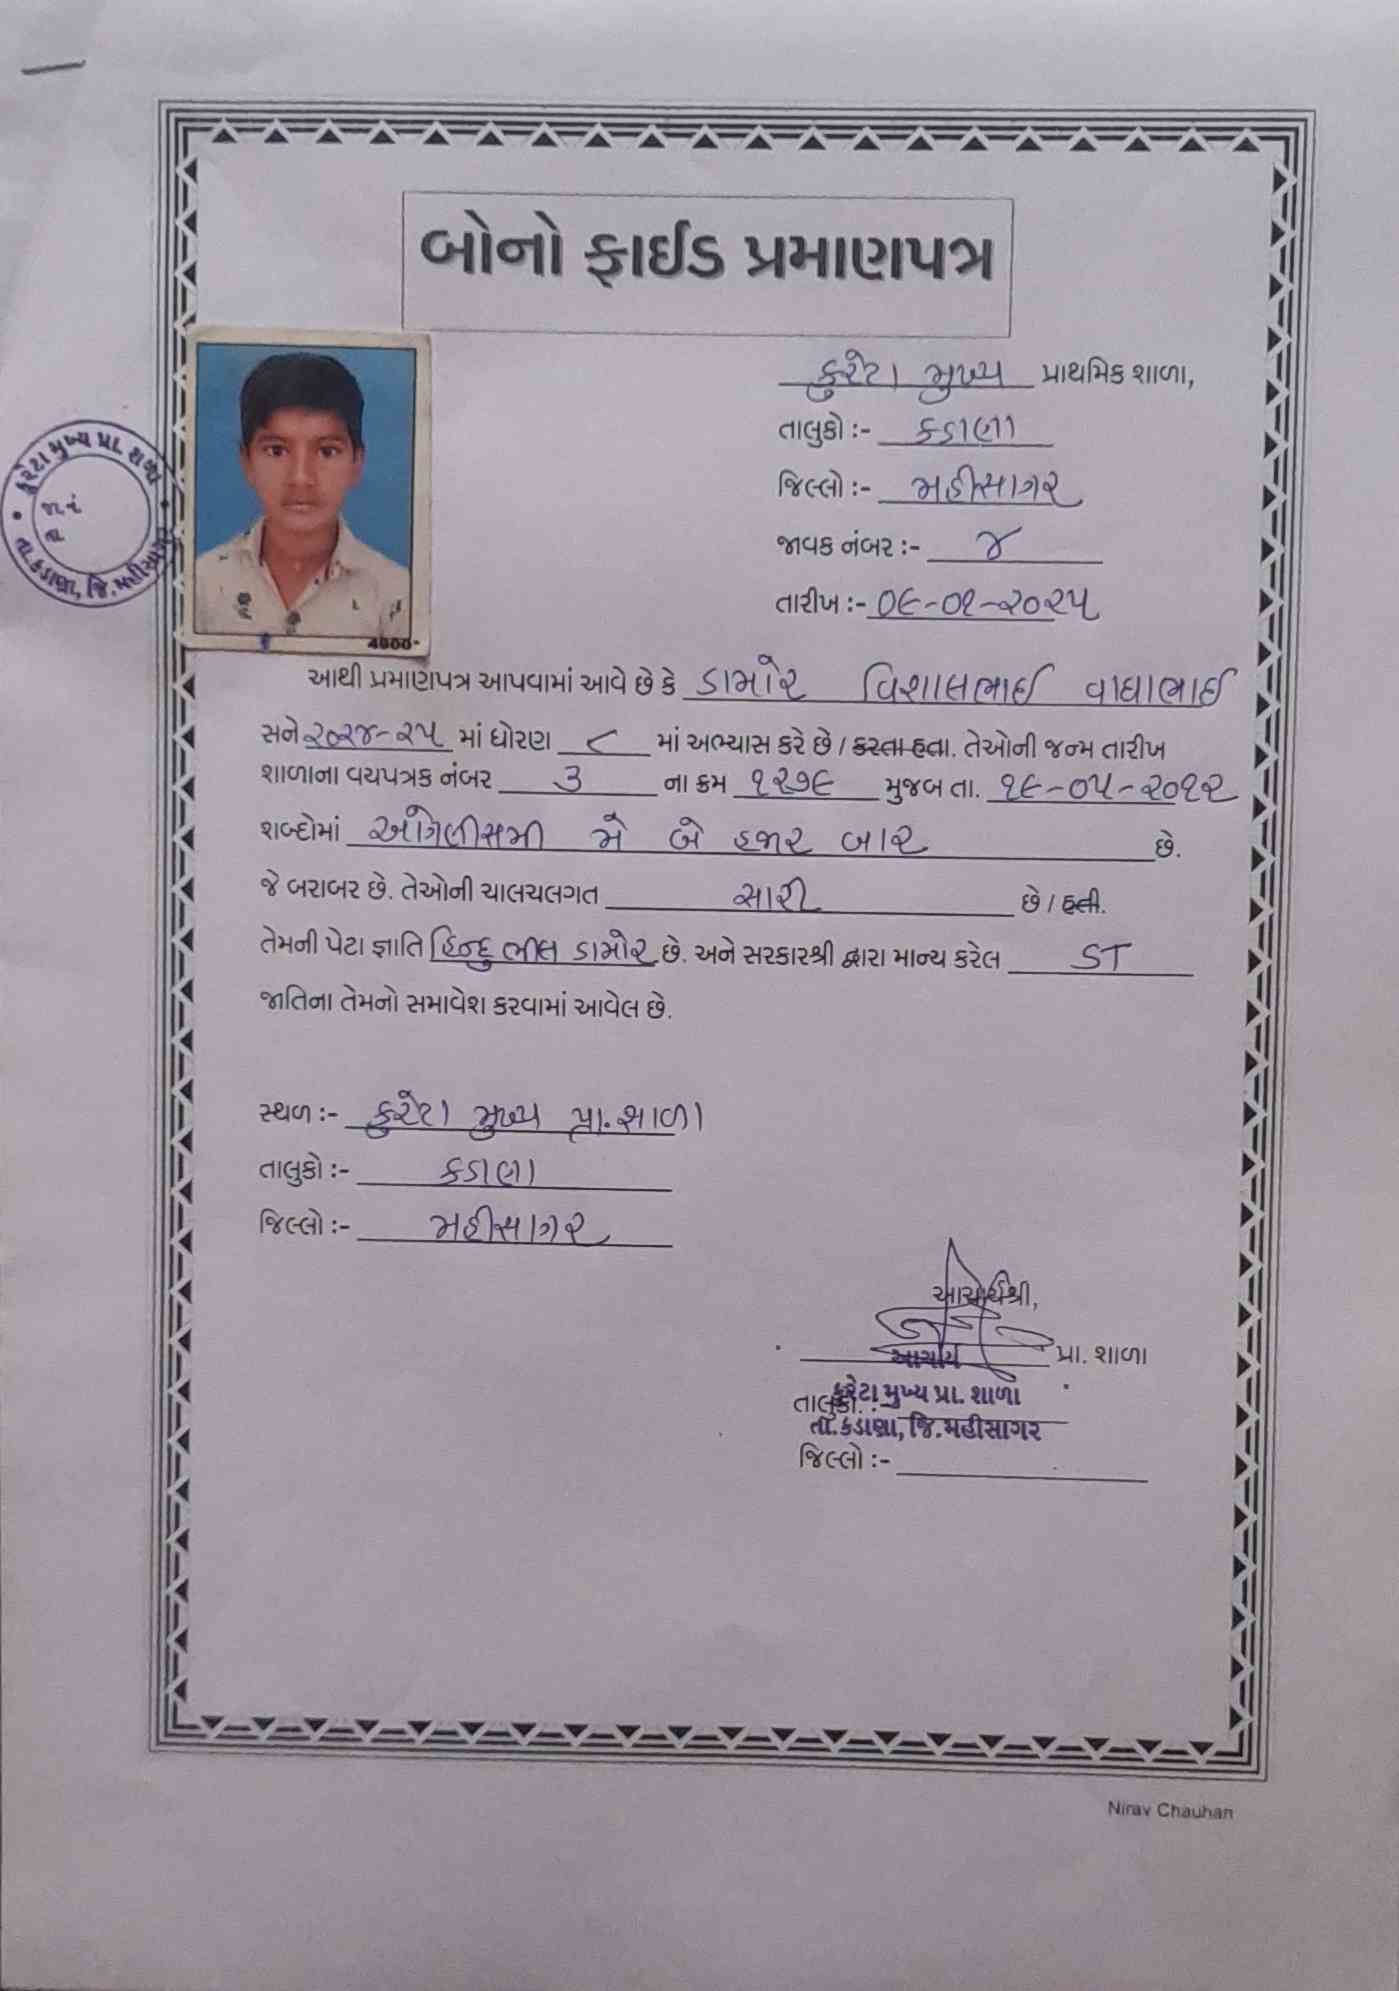 બોનો ફાઈડ પ્રમાણપત્ર
કુરેટા મુખ્ય પ્રાથમિક શાળા,
તાલુકો :- કડાણા
જિલ્લો :- મહીસાગર
જાવક નંબર :- ૪
તારીખ :- ૦૯-૦૧-૨૦૨૫
કુરેટા મુખ્ય પ્રા. શાળા
જા.નં
તા
તા.કડાણા, જિ.મહીસાગર
4800
આથી પ્રમાણપત્ર આપવામાં આવે છે કે ડામોર વિશાલભાઈ વાઘાભાઈ
સને ૨૦૨૪-૨૫ માં ધોરણ ૮ માં અભ્યાસ કરે છે / કરતા હતા. તેઓની જન્મ તારીખ
શાળાના વયપત્રક નંબર ૩ ના ક્રમ ૧૨૭૯ મુજબ તા. ૧૯-૦૫-૨૦૧૨
શબ્દોમાં ઓગણીસમી મે બે હજાર બાર છે.
જે બરાબર છે. તેઓની ચાલચલગત સારી છે / હતી.
તેમની પેટા જ્ઞાતિ હિન્દુ ભીલ ડામોર છે. અને સરકારશ્રી દ્વારા માન્ય કરેલ ST
જાતિના તેમનો સમાવેશ કરવામાં આવેલ છે.
સ્થળ :- કુરેટા મુખ્ય પ્રા. શાળા
તાલુકો :- કડાણા
જિલ્લો :- મહીસાગર
આચાર્યશ્રી,
આચાર્ય પ્રા. શાળા
કુરેટા મુખ્ય પ્રા. શાળા
તાલુકો :-
તા.કડાણા, જિ.મહીસાગર
જિલ્લો :-
Nirav Chauhan